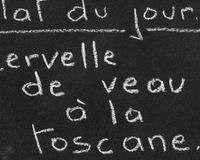 lat du jour.
ervelle
de veau
à la
toscane.